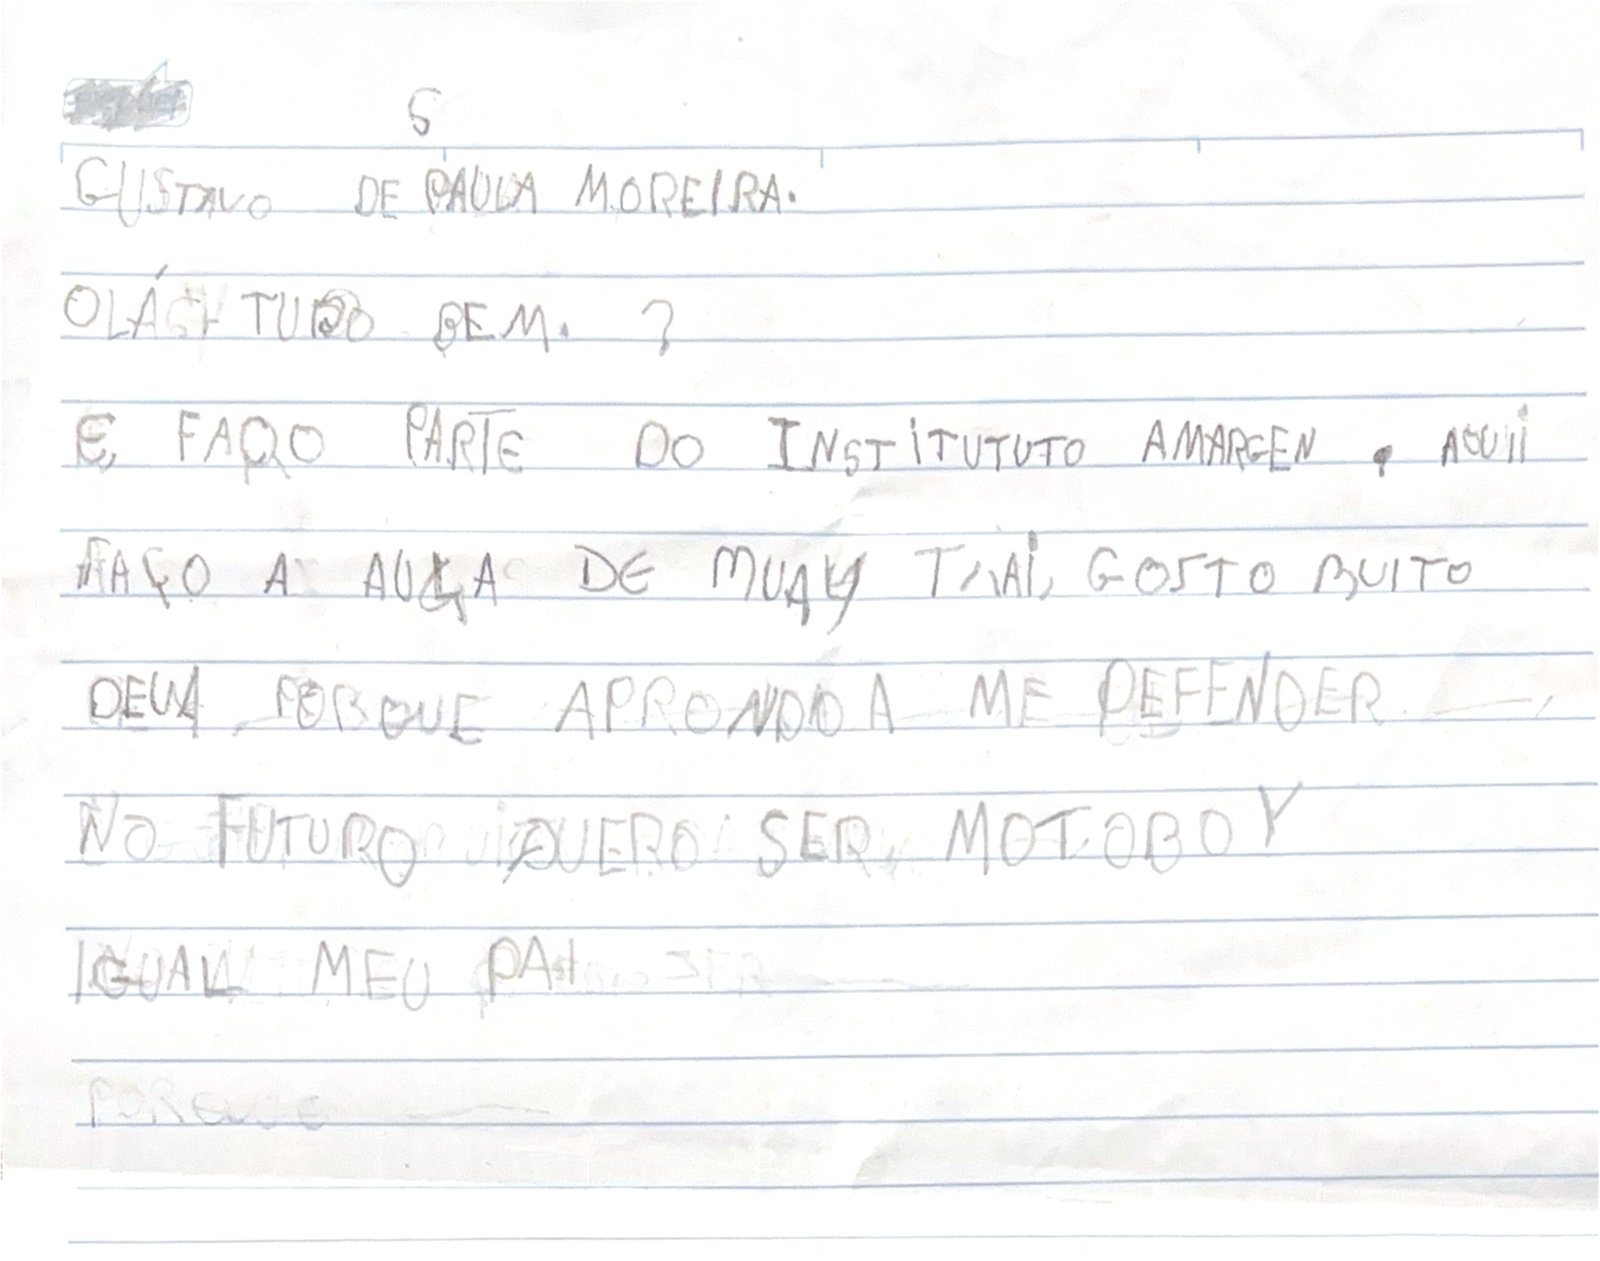 S
GUSTAVO DE PAULA MOREIRA.
OLÁ TUDO BEM. ?
E FAÇO PARTE DO INSTITUTUTO AMARGEN . AQUII
FAÇO A AULA DE MUAY THAI, GOSTO BUITO
DELA PORQUE APRONDO A ME DEFENDER
NO FUTURO QUERO SER MOTOBOY
IGUAL MEU PAI
PORQUE